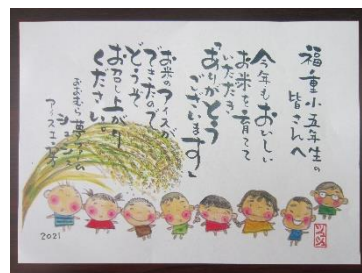 福重小五年生の
皆さんへ
今年もおいしい
お米を育てて
いただき
「ありがとう
ございます」
お米のアイスが
できたので
どうぞ
お召し上がり
ください。
おおむら夢ファーム
シュシュ
アイス工房
2021